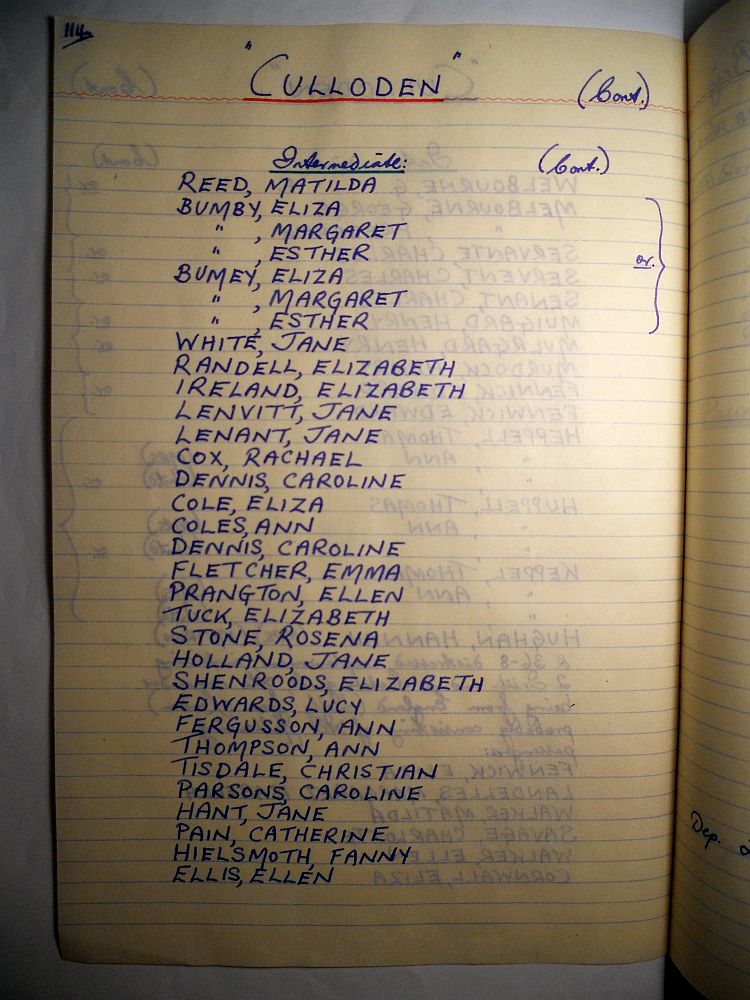 114
"CULLODEN" (Cont.)
Intermediate: (Cont.)
REED, MATILDA
BUMBY, ELIZA
" , MARGARET
" , ESTHER or.
BUMEY, ELIZA
" , MARGARET
" , ESTHER
WHITE, JANE
RANDELL, ELIZABETH
IRELAND, ELIZABETH
LENVITT, JANE
LENANT, JANE
COX, RACHAEL
DENNIS, CAROLINE
COLE, ELIZA
COLES, ANN
DENNIS, CAROLINE
FLETCHER, EMMA
PRANGTON, ELLEN
TUCK, ELIZABETH
STONE, ROSENA
HOLLAND, JANE
SHENROODS, ELIZABETH
EDWARDS, LUCY
FERGUSSON, ANN
THOMPSON, ANN
TISDALE, CHRISTIAN
PARSONS, CAROLINE
HANT, JANE
PAIN, CATHERINE
HIELSMOTH, FANNY
ELLIS, ELLEN
Dep.